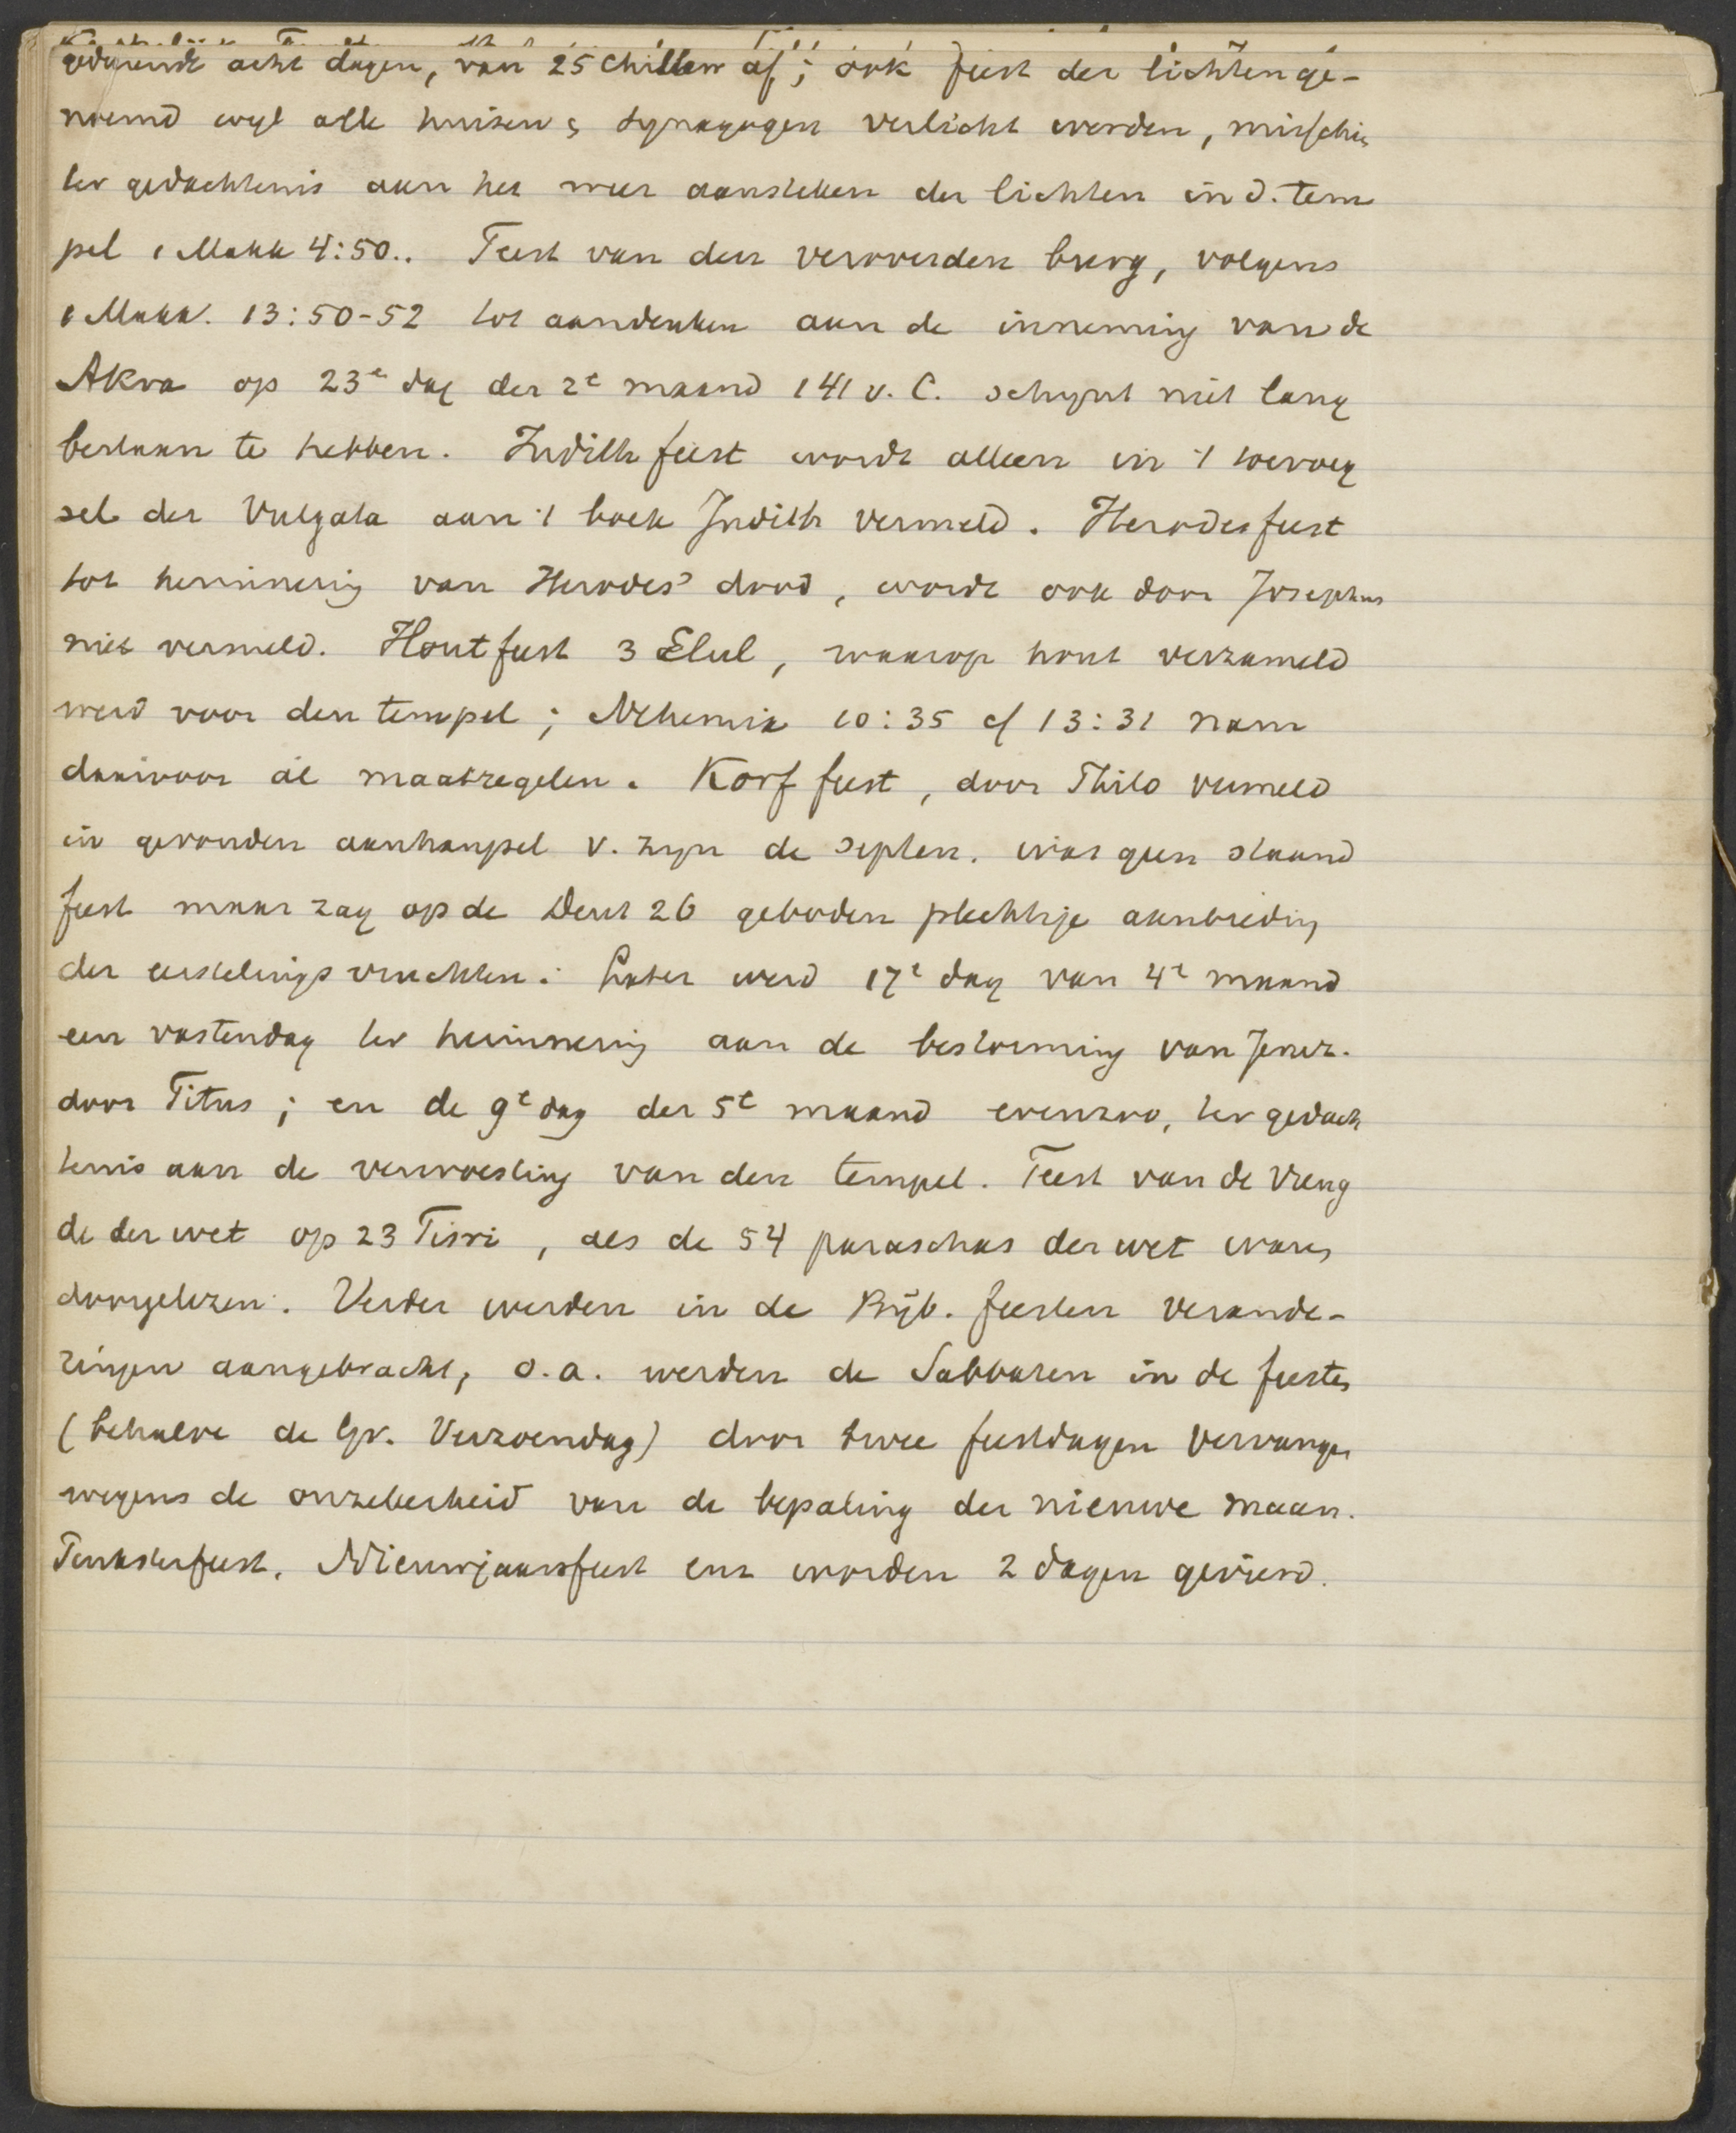 gedurende acht dagen, van 25 Chislew af; ook feest der lichten ge-
noemd wyl alle huizen & synagogen verlicht werden, misschien
ter gedachtenis aan het weer aansteken der lichten in d. tem
pel 1 Makk 4:50.. Feest van den veroverden burg, volgens
1 Makk. 13:50-52 tot aandenken aan de inneming van de
Akra op 23e dag der 2e maand 141 v. C. schynt niet lang
bestaan te hebben. Judith feest wordt alleen in 't toevoeg
sel der Vulgata aan 't boek Judith vermeld. Herodesfeest
tot herinnering van Herodes' dood, wordt ook door Josephus
niet vermeld. Houtfeest 3 Elul, waarop hout verzameld
werd voor den tempel; Nehemia 10:35 cf 13:31 nam
daarvoor al maatregelen. Korf feest, door Philo vermeld
in gevonden aanhangsel v. zyn de septen. was geen staand
feest maar zag op de Deut 26 geboden plechtige aanbieding
der eerstelings vruchten. Later werd 17e dag van 4e maand
een vastendag ter herinnering aan de bestorming van Jeruz.
door Titus; en de 9e dag der 5e maand evenzoo, ter gedach
tenis aan de verwoesting van den tempel. Feest van de vreug
de der wet op 23 Tisri, als de 54 paraschas der wet waren
doorgelezen. Verder werden in de Bijb. feesten verande-
ringen aangebracht, o.a. werden de Sabbaten in de feesten
(behalve de Gr. Verzoendag) door twee feestdagen vervangen
wegens de onzekerheid van de bepaling der nieuwe maan.
Pinksterfeest, Nieuwjaarsfeest enz worden 2 dagen gevierd.